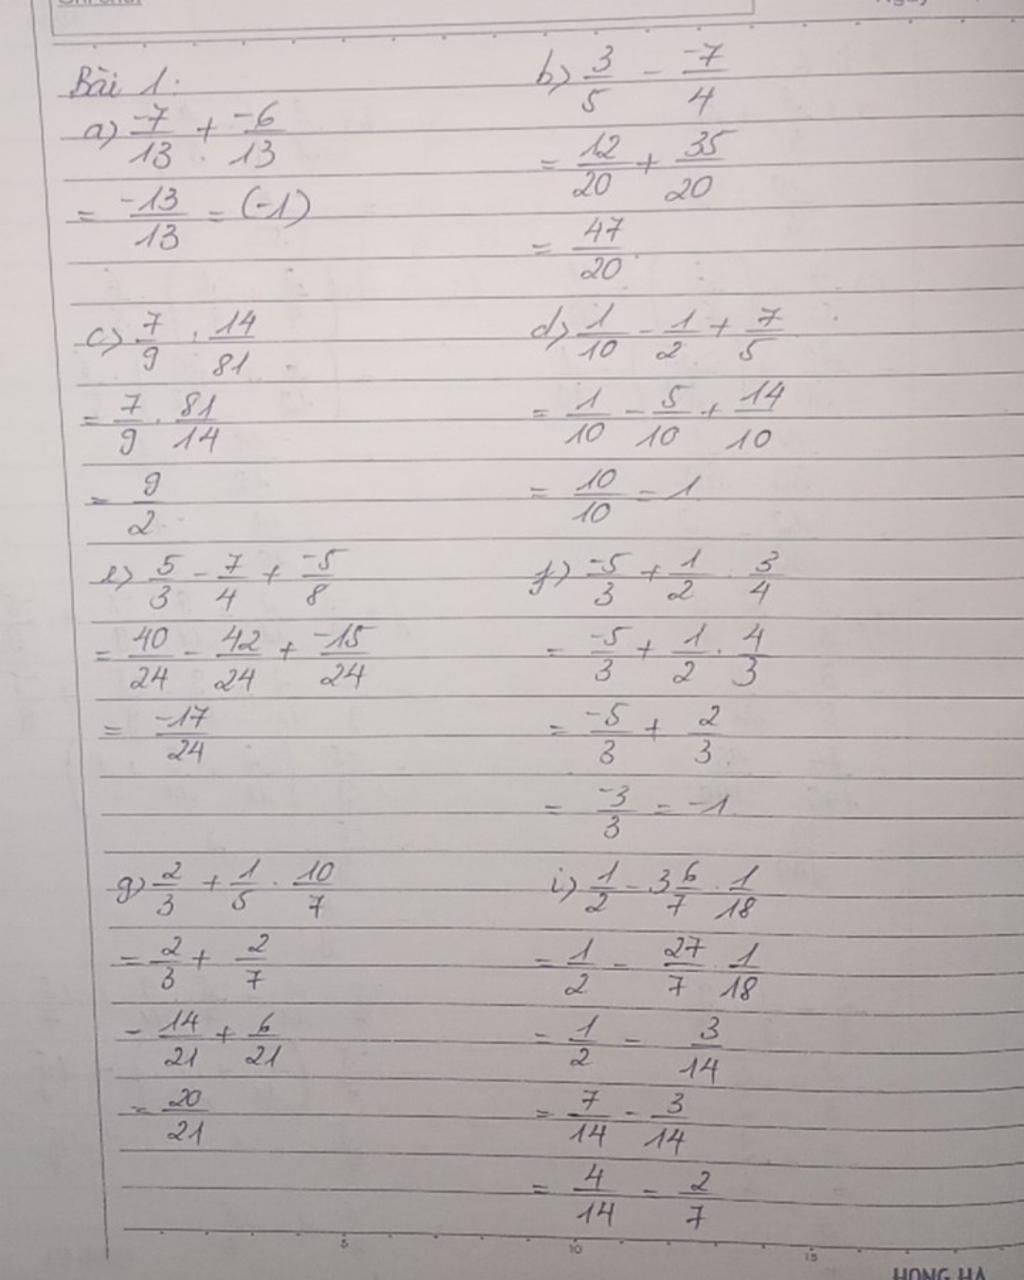 Bài 1:
a) \frac{-7}{13} + \frac{-6}{13}
= \frac{-13}{13} = (-1)
b) \frac{3}{5} - \frac{-7}{4}
= \frac{12}{20} + \frac{35}{20}
= \frac{47}{20}
c) \frac{7}{9} : \frac{14}{81}
= \frac{7}{9} . \frac{81}{14}
= \frac{9}{2}
d) \frac{1}{10} - \frac{1}{2} + \frac{7}{5}
= \frac{1}{10} - \frac{5}{10} + \frac{14}{10}
= \frac{10}{10} = 1
e) \frac{5}{3} - \frac{7}{4} + \frac{-5}{8}
= \frac{40}{24} - \frac{42}{24} + \frac{-15}{24}
= \frac{-17}{24}
f) \frac{-5}{3} + \frac{1}{2} : \frac{3}{4}
= \frac{-5}{3} + \frac{1}{2} . \frac{4}{3}
= \frac{-5}{3} + \frac{2}{3}
= \frac{-3}{3} = -1
g) \frac{2}{3} + \frac{1}{5} . \frac{10}{7}
= \frac{2}{3} + \frac{2}{7}
= \frac{14}{21} + \frac{6}{21}
= \frac{20}{21}
i) \frac{1}{2} - 3\frac{6}{7} . \frac{1}{18}
= \frac{1}{2} - \frac{27}{7} . \frac{1}{18}
= \frac{1}{2} - \frac{3}{14}
= \frac{7}{14} - \frac{3}{14}
= \frac{4}{14} = \frac{2}{7}
5 10 15
HONG HA